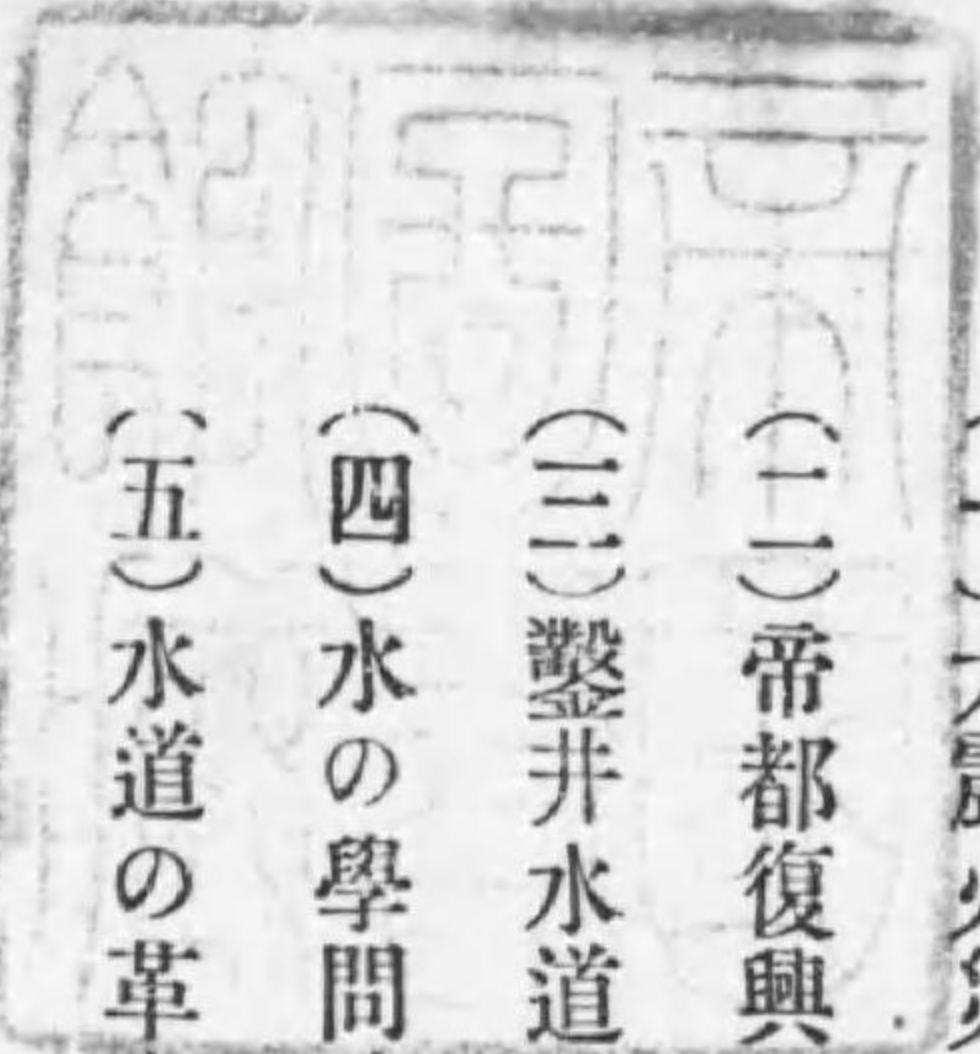 (二)帝都復興
(三)鑿井水道
(四)水の學問
(五)水道の革